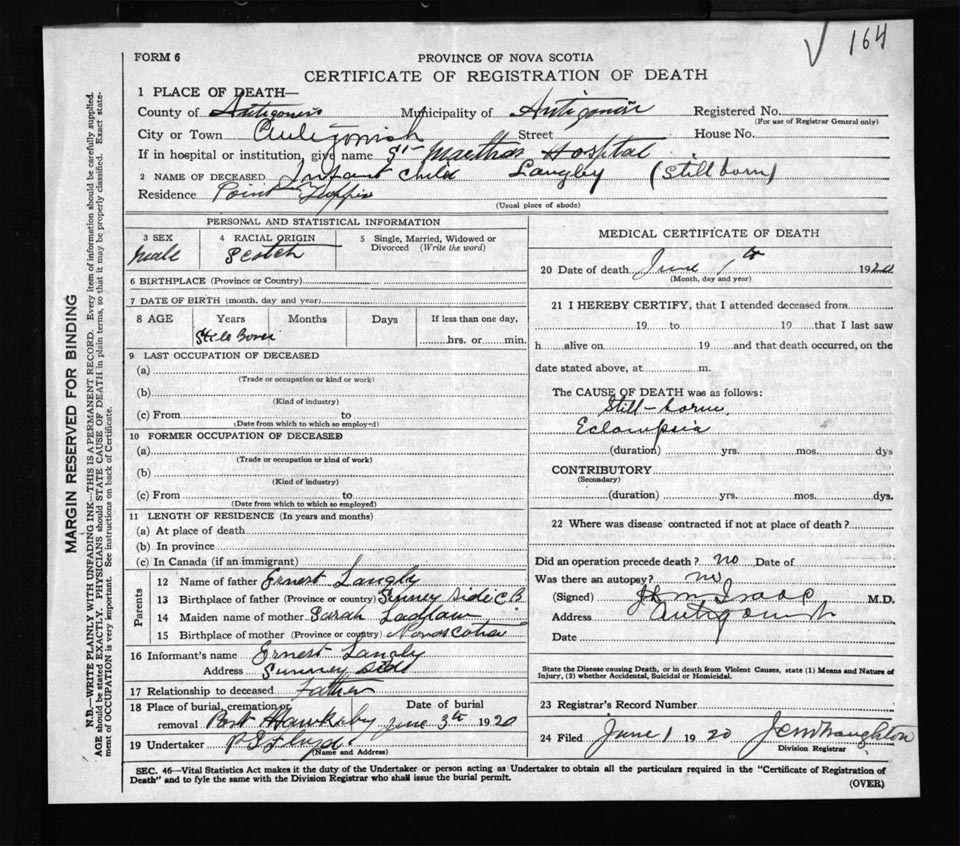 164
FORM 6
PROVINCE OF NOVA SCOTIA
CERTIFICATE OF REGISTRATION OF DEATH
1 PLACE OF DEATH—
County of Antigonish Municipality of Antigonish Registered No.
(For use of Registrar General only)
City or Town Antigonish Street House No.
If in hospital or institution, give name St Marthas Hospital
2 NAME OF DECEASED Infant Child Langley (Stillborn)
Residence Point Tupper
(Usual place of abode)
PERSONAL AND STATISTICAL INFORMATION
3 SEX 4 RACIAL ORIGIN 5 Single, Married, Widowed or Divorced (Write the word)
Male Scotch
6 BIRTHPLACE (Province or Country)
7 DATE OF BIRTH (month, day and year)
8 AGE Years Months Days If less than one day,
Still Born hrs. or min.
9 LAST OCCUPATION OF DECEASED
(a)
(Trade or occupation or kind or work)
(b)
(Kind of industry)
(c) From to
(Date from which to which so employed)
10 FORMER OCCUPATION OF DECEASED
(a)
(Trade or occupation or kind of work)
(b)
(Kind of industry)
(c) From to
(Date from which to which so employed)
11 LENGTH OF RESIDENCE (In years and months)
(a) At place of death
(b) In province
(c) In Canada (if an immigrant)
Parents
12 Name of father Ernest Langly
13 Birthplace of father (Province or country) Sunney Side C B
14 Maiden name of mother Sarah Laidlaw
15 Birthplace of mother (Province or country) Nova Scotia
16 Informant's name Ernest Langly
Address Sunney Side
17 Relationship to deceased Father
18 Place of burial, cremation or removal Port Hawksby Date of burial June 3th 1920
19 Undertaker P S Floyd
(Name and Address)
MEDICAL CERTIFICATE OF DEATH
20 Date of death June 1st 1920
(Month, day and year)
21 I HEREBY CERTIFY, that I attended deceased from
19 to 19 that I last saw
h alive on 19 and that death occurred, on the
date stated above, at m.
The CAUSE OF DEATH was as follows:
Still-born
Eclampsia
(duration) yrs. mos. dys
CONTRIBUTORY
(Secondary)
(duration) yrs. mos. dys.
22 Where was disease contracted if not at place of death?
Did an operation precede death? no Date of
Was there an autopsy? no
(Signed) M.D.
Address Antigonish
Date
State the Disease causing Death, or in death from Violent Causes, state (1) Means and Nature of
Injury, (2) whether Accidental, Suicidal or Homicidal.
23 Registrar's Record Number
24 Filed June 1 1920
Division Registrar
SEC. 46—Vital Statistics Act makes it the duty of the Undertaker or person acting as Undertaker to obtain all the particulars required in the "Certificate of Registration of
Death" and to fyle the same with the Division Registrar who shall issue the burial permit.
(OVER)
MARGIN RESERVED FOR BINDING
N.B.—WRITE PLAINLY WITH UNFADING INK—THIS IS A PERMANENT RECORD. Every item of information should be carefully supplied.
AGE should be stated EXACTLY. PHYSICIANS should STATE CAUSE OF DEATH in plain terms, so that it may be properly classified. Exact state-
ment of OCCUPATION is very important. See instructions on back of Certificate.